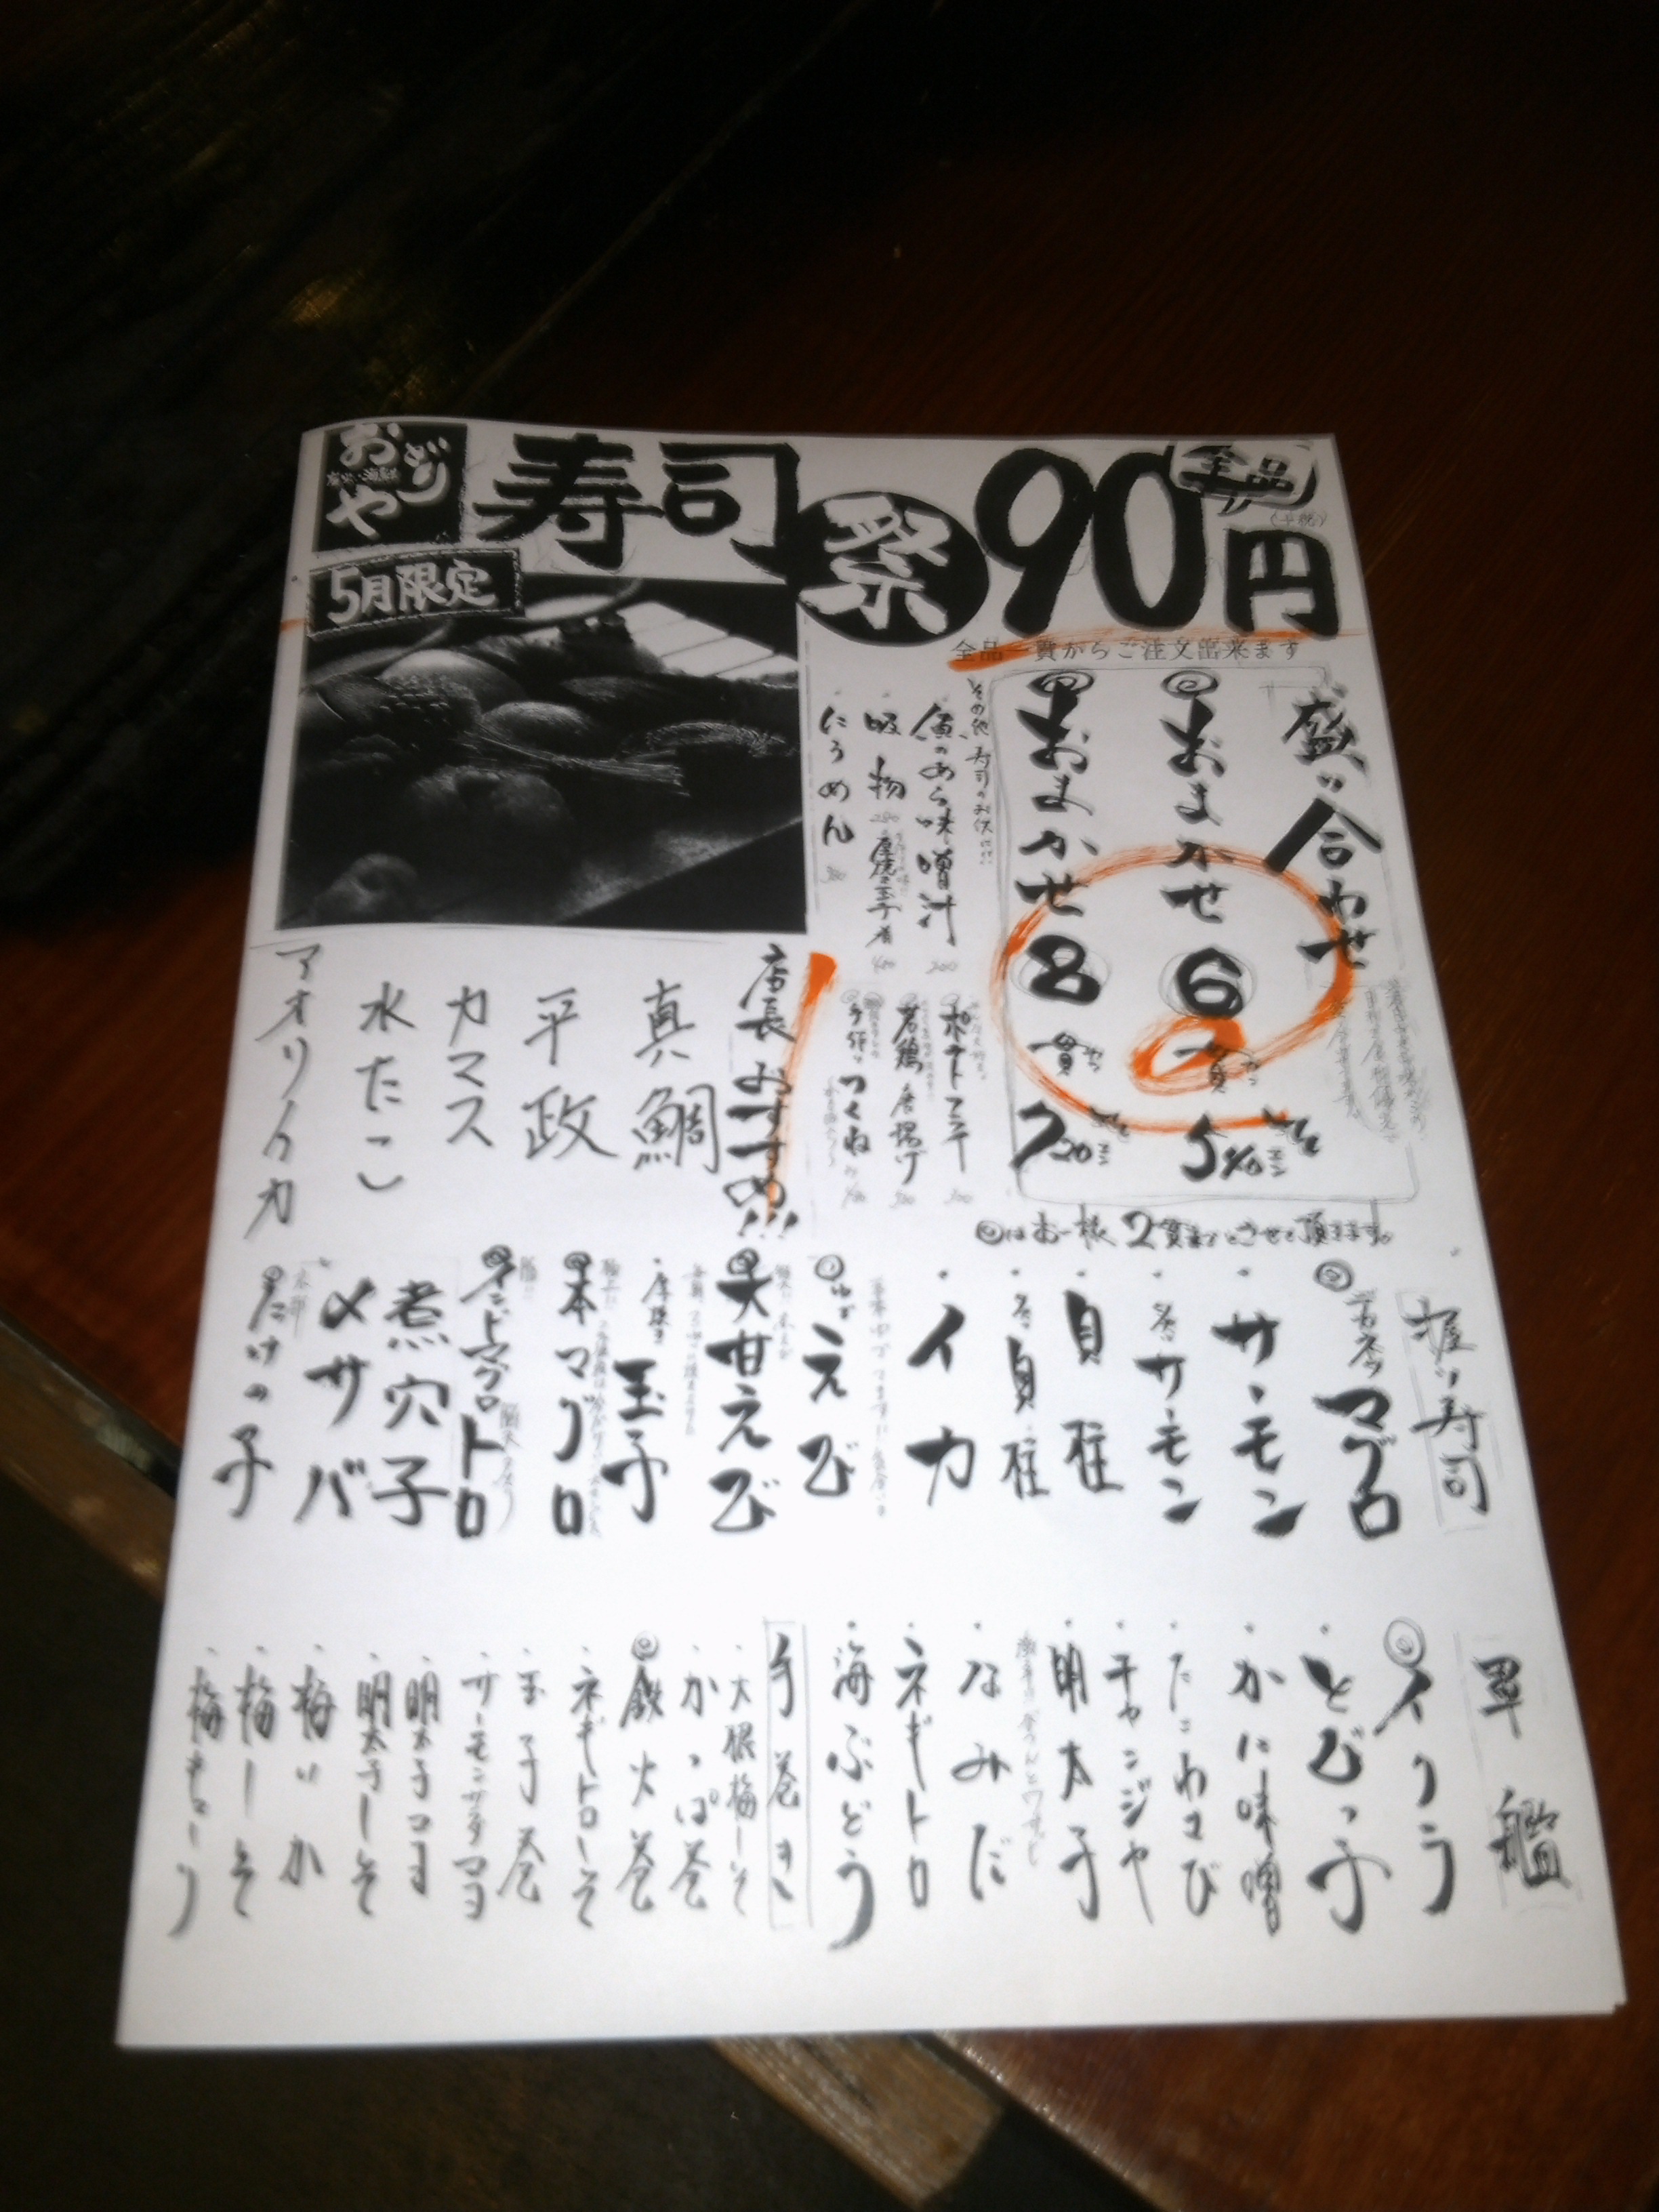 おどりや
寿司祭
90円
全品
5月限定
全品一貫からご注文出来ます
盛り合わせ
おまかせ6貫
540エン
おまかせ8貫
720エン
はお一様2貫までとさせて頂きます。
その他寿司のお供に
魚のあら味噌汁 200
吸物 280
にうめん 380
ポテトフライ 300
若鶏唐揚げ 500
手作りつくね
店長おすすめ!!!
真鯛
平政
カマス
水たこ
アオリイカ
握り寿司
マグロ
・サーモン
・炙りサーモン
・貝柱
・炙り貝柱
・イカ
ゆでえび
大甘えび
・厚焼き玉子
本マグロ
インドマグロトロ
煮穴子
〆サバ
たけの子
軍艦
イクラ
・とびっ子
・かに味噌
・たこわさび
・チャンジャ
・明太子
・なみだ
・ネギトロ
・海ぶどう
手巻き
・大根梅しそ
・かっぱ巻
鉄火巻
・ネギトロしそ
・玉子巻
・サーモンサラダマヨ
・明太子マヨ
・明太子しそ
・梅いか
・梅しそ
・梅きゅうり